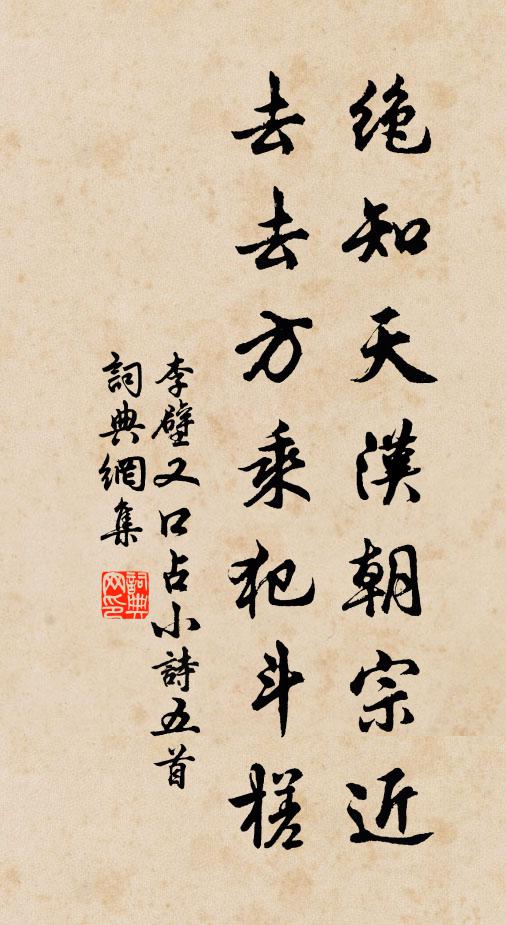 絶知天漢朝宗近
去去方乘犯斗槎
李壁又口占小詩五首
詞典網集
詞典網印